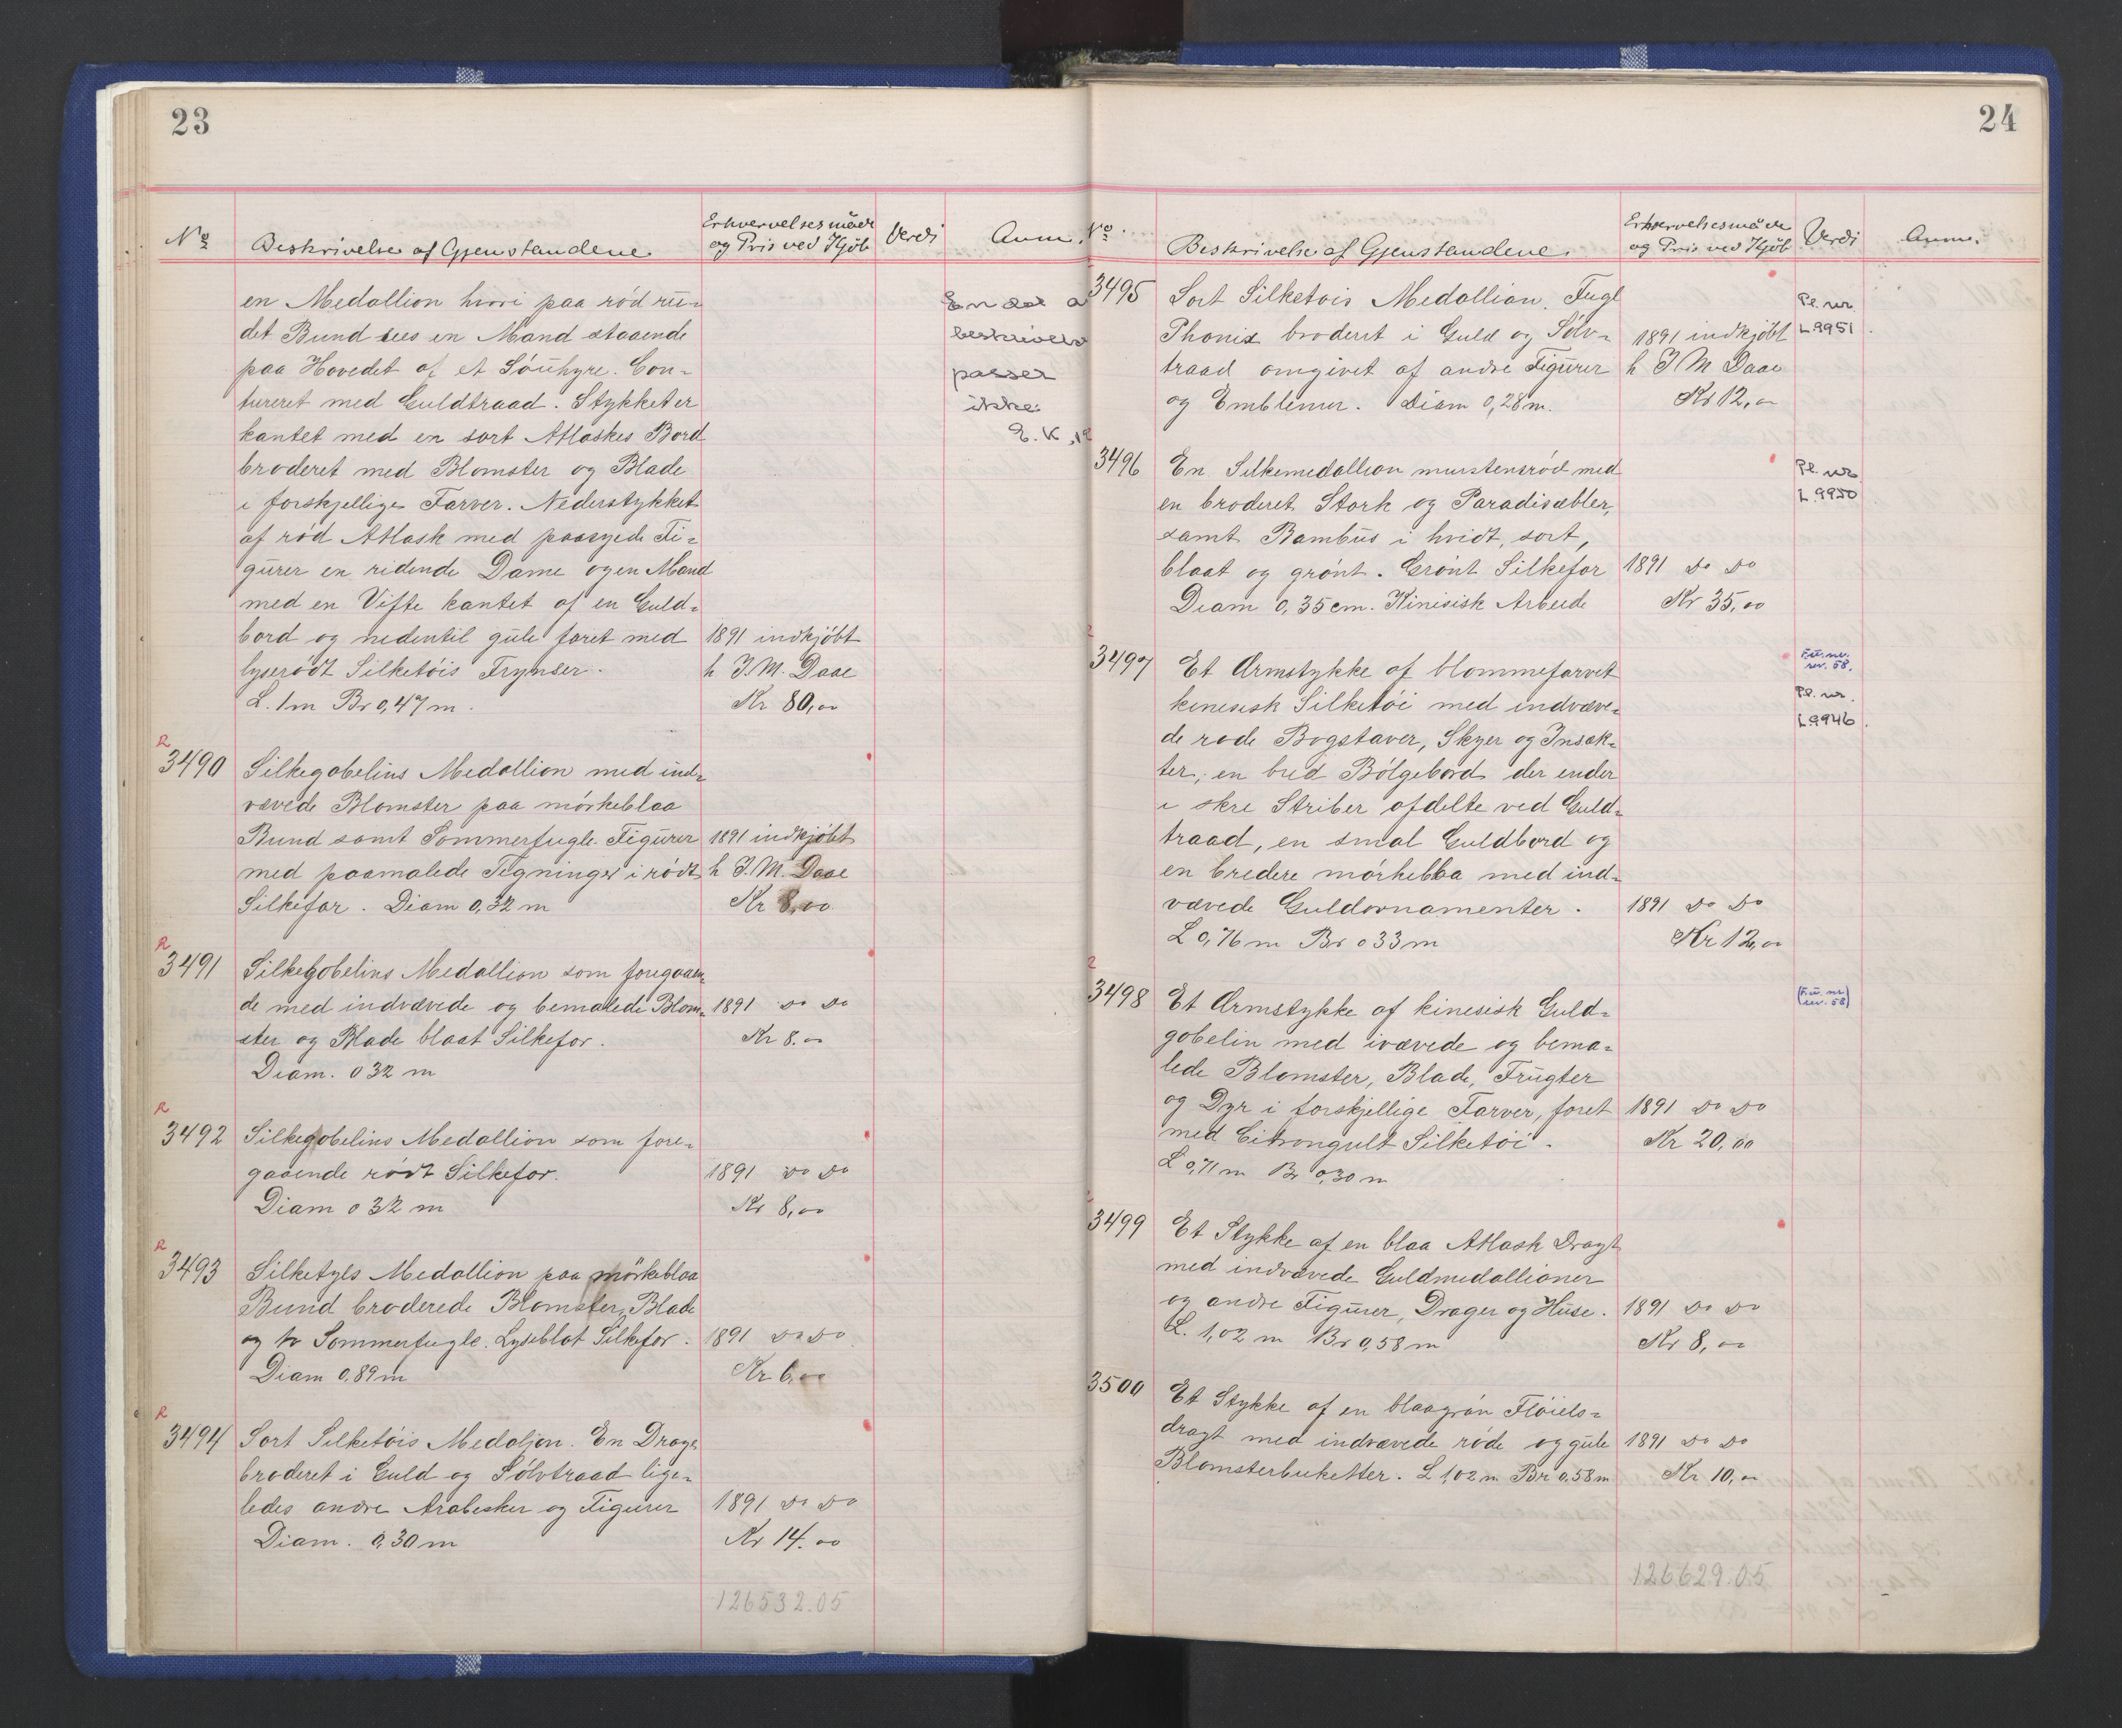 23
No
Beskrivelse af Gjenstandene
Erhvervelsesmåde
og Pris ved Kjöb
Verdi
Anm.
en Medallion hvori paa röd ru-
det Bund sees en Mand staaende
paa Hovedet af et Söuhyre. Con-
tureret med Guldtraad. Stykket er
kantet med en sort Atlaskes Bord
broderet med Blomster og Blade
i forskjellige Farver. Nederstykket
af röd Atlask med paasyede Fi-
gurer en ridende Dame og en Mand
med en Vifte kantet af en Guld-
bord og nedentil gule foret med
lyserödt Silketöis Frynser.
L. 1 m Br 0,47 m.
1891 indkjöbt
h I. M. Daae
Kr 80,00
En del a
beskrivels
passer
ikke.
E. K.
R
3490
Silkegobelins Medallion med ind-
vævede Blomster paa mörkeblaa
Bund samt Sommerfugle. Figurer
med paamalede Tegninger i rödt
Silkefor. Diam 0,32 m
1891 indkjöbt
h I. M. Daae
Kr 8,00
R
3491
Silkegobelins Medallion som foregaaen-
de med indvævede og bemalede Blom-
ster og Blade blaat Silkefor.
Diam. 0 32 m
1891 Do Do
Kr 8.00
R
3492
Silkegobelins Medallion som fore-
gaaende rödt Silkefor.
Diam 0 32 m
1891 Do Do
Kr 8,00
R
3493
Silketyls Medallion paa mörkeblaa
Bund broderede Blomster, Blade
og to Sommerfugle. Lyseblot Silkefor.
Diam 0,89 m
1891 Do Do
Kr 6,00
R
3494
Sort Silketöis Medaljon. En Drage
broderet i Guld og Sölvtraad lige-
ledes andre Arabesker og Figurer
Diam. 0,30 m
1891 Do Do
Kr 14.00
126532.05
24
No
Beskrivelse af Gjenstandene.
Erhvervelsesmåde
og Pris ved Kjöb
Verdi
Anm.
3495
Sort Silketois Medallion. Fugl
Phonix broderet i Guld og Sölv-
traad omgivet af andre Figurer
og Emblemer. Diam 0,28 m.
1891 indkjöbt
h I M Daae
Kr 12,00
Pl. nr.
L.9951.
3496
En Silkemedallion murstensröd med
en broderet Stork og Paradisæbler,
samt Bambus i hvidt, sort,
blaat og grönt. Grönt Silkefor
Diam 0,35 cm. Kinisisk Arbeide
1891 Do Do
Kr 35,00
Pl. nr.
L.9950
3497
Et Ærmstykke af blommefarvet
kinesisk Silketöi med indvæve-
de rode Bogstaver, Skyer og Insek-
ter, en bred Bölgebord der ender
i skre Striber afdelte ved Guld-
traad, en smal Guldbord og
en bredere mörkebba med ind-
vævede Guldornamenter.
L 0,76 m Br 0 33 m
1891 Do Do
Kr 12,00
F.u. nr.
rev. 58.
Pl. nr.
L.9946.
3498
Et Ærmstykke af kinesisk Guld-
gobelin med ivævede og bema-
lede Blomster, Blade, Frugter
og Dyr i forskjellige Farver, foret
med Citrongult Silketöi.
L 0,71 m Br 0,30 m
1891 Do Do
Kr 20,00
(F.u. nr.
rev. 58)
3499
Et Stykke af en blaa Atlask Dragt
med indvævede Guldmedallioner
og andre Figurer, Drager og Huse.
L. 1,02 m Br 0,58 m
1891 Do Do
Kr 8,00
3500
Et Stykke af en blaagrön Flöiels-
dragt med indvævede röde og gule
Blomsterbuketter. L 1,02 m Br 0,58 m
1891 Do Do
Kr 10,00
126629.05